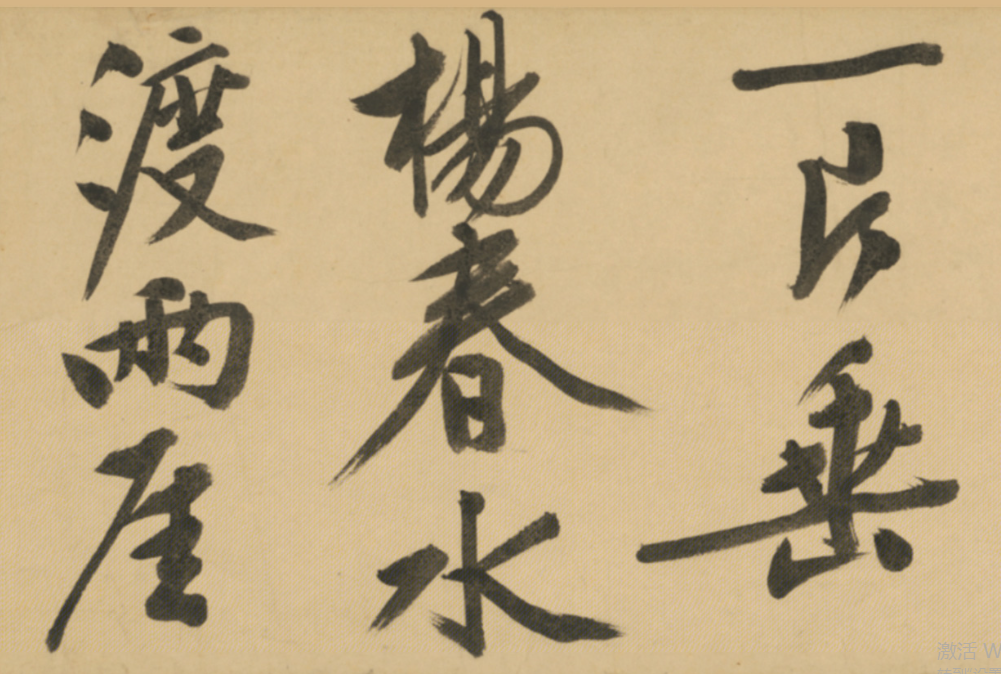 一片垂
楊春水
渡兩厓
激活 W